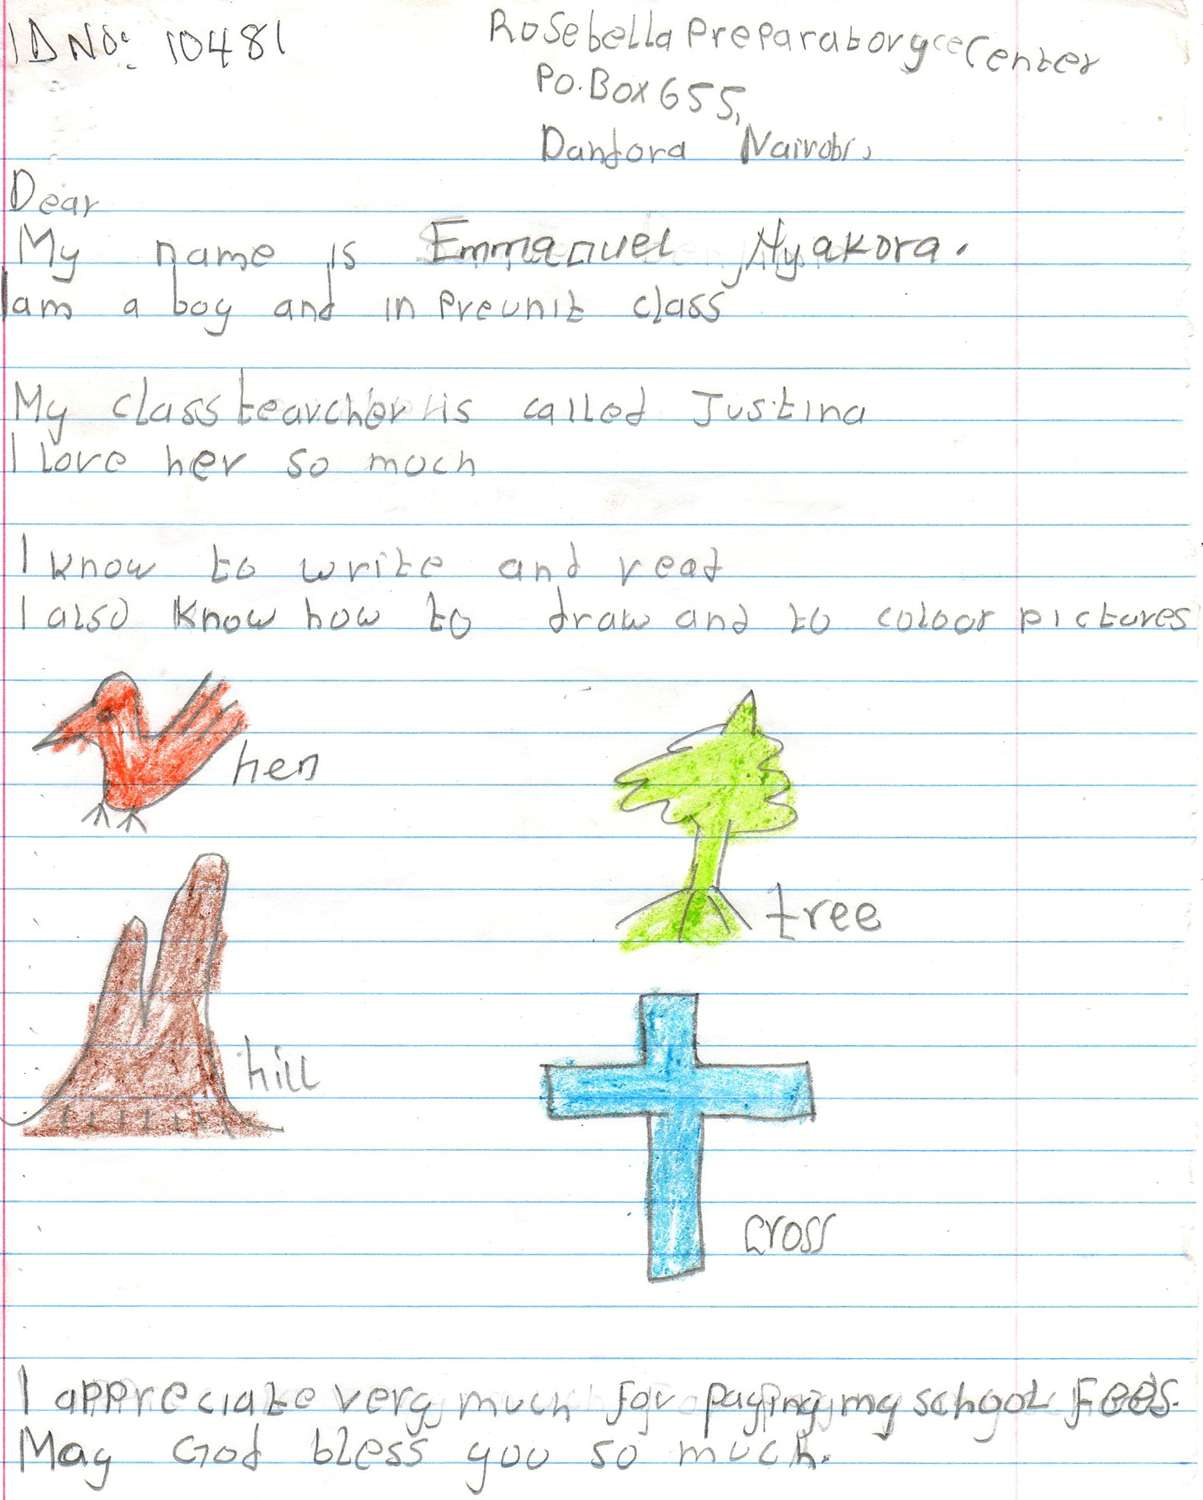 ID NO: 10481
Rosebella Preparatory Center
P.O. Box 655,
Dandora Nairobi,
Dear
My name is Emmanuel Nyakora.
I am a boy and in Preunit class
My class tearcher is called Justina
I love her so much
I know to write and read
I also know how to draw and to colour pictures
hen
tree
hill
cross
I appreciate very much for paying my school Fees.
May God bless you so much.